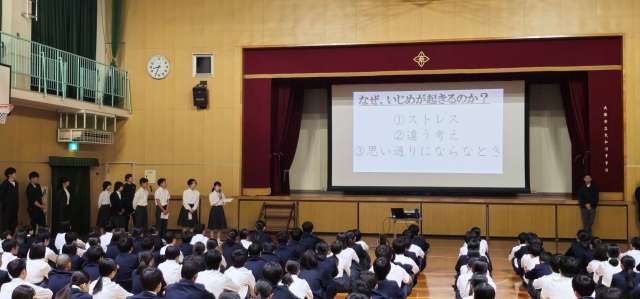 なぜ、いじめが起きるのか？
①ストレス
②違う考え
③思い通りにならなとき